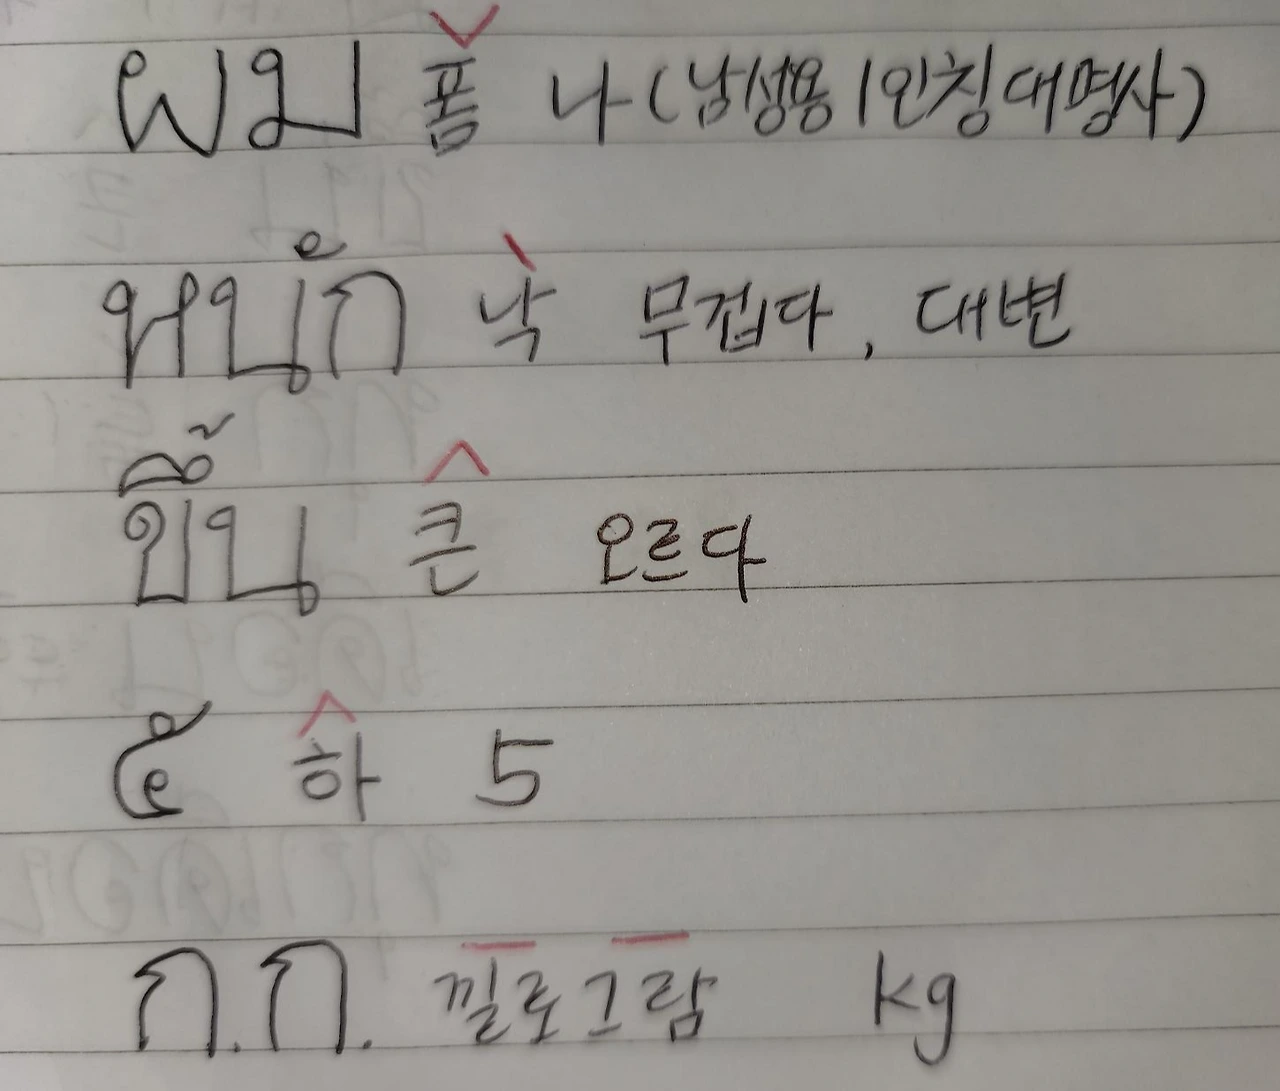 ผม 폼 나 (남성용 1인칭 대명사)
หนัก 낙 무겁다, 대변
ขึ้น 큰 오르다
๕ 하 5
ก.ก. 낄로그람 kg